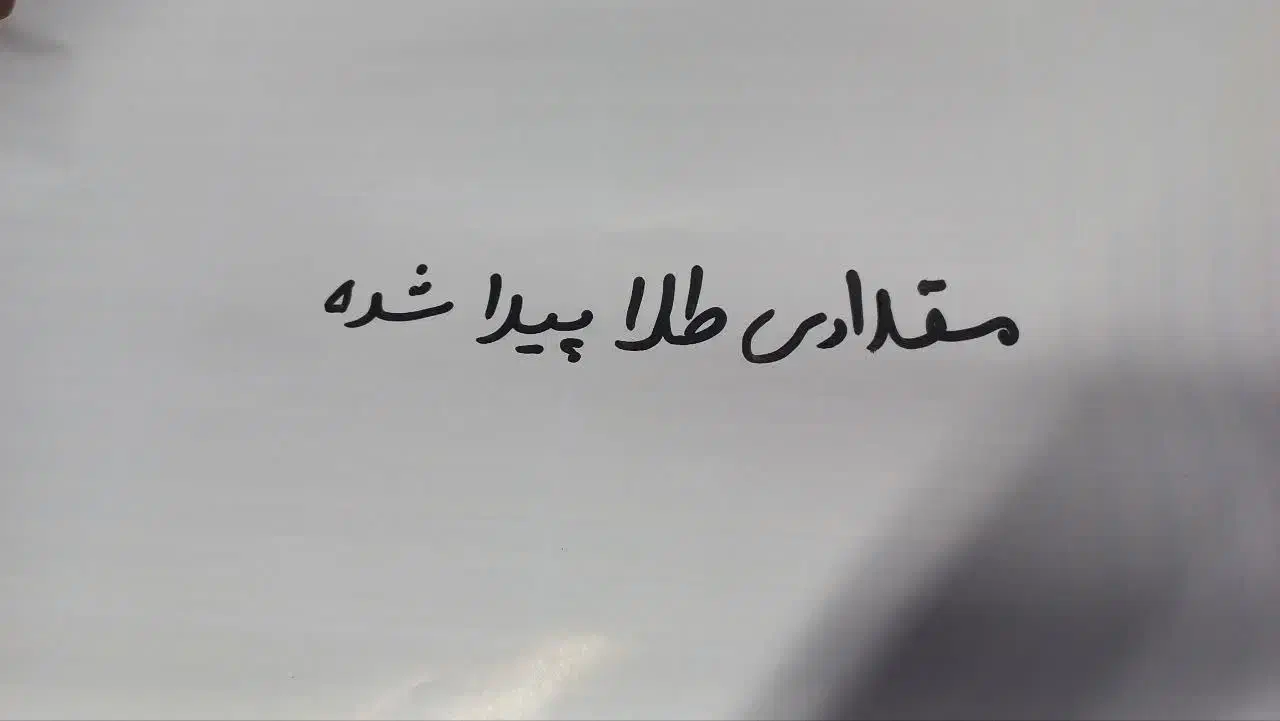 مقداری طلا پیدا شده